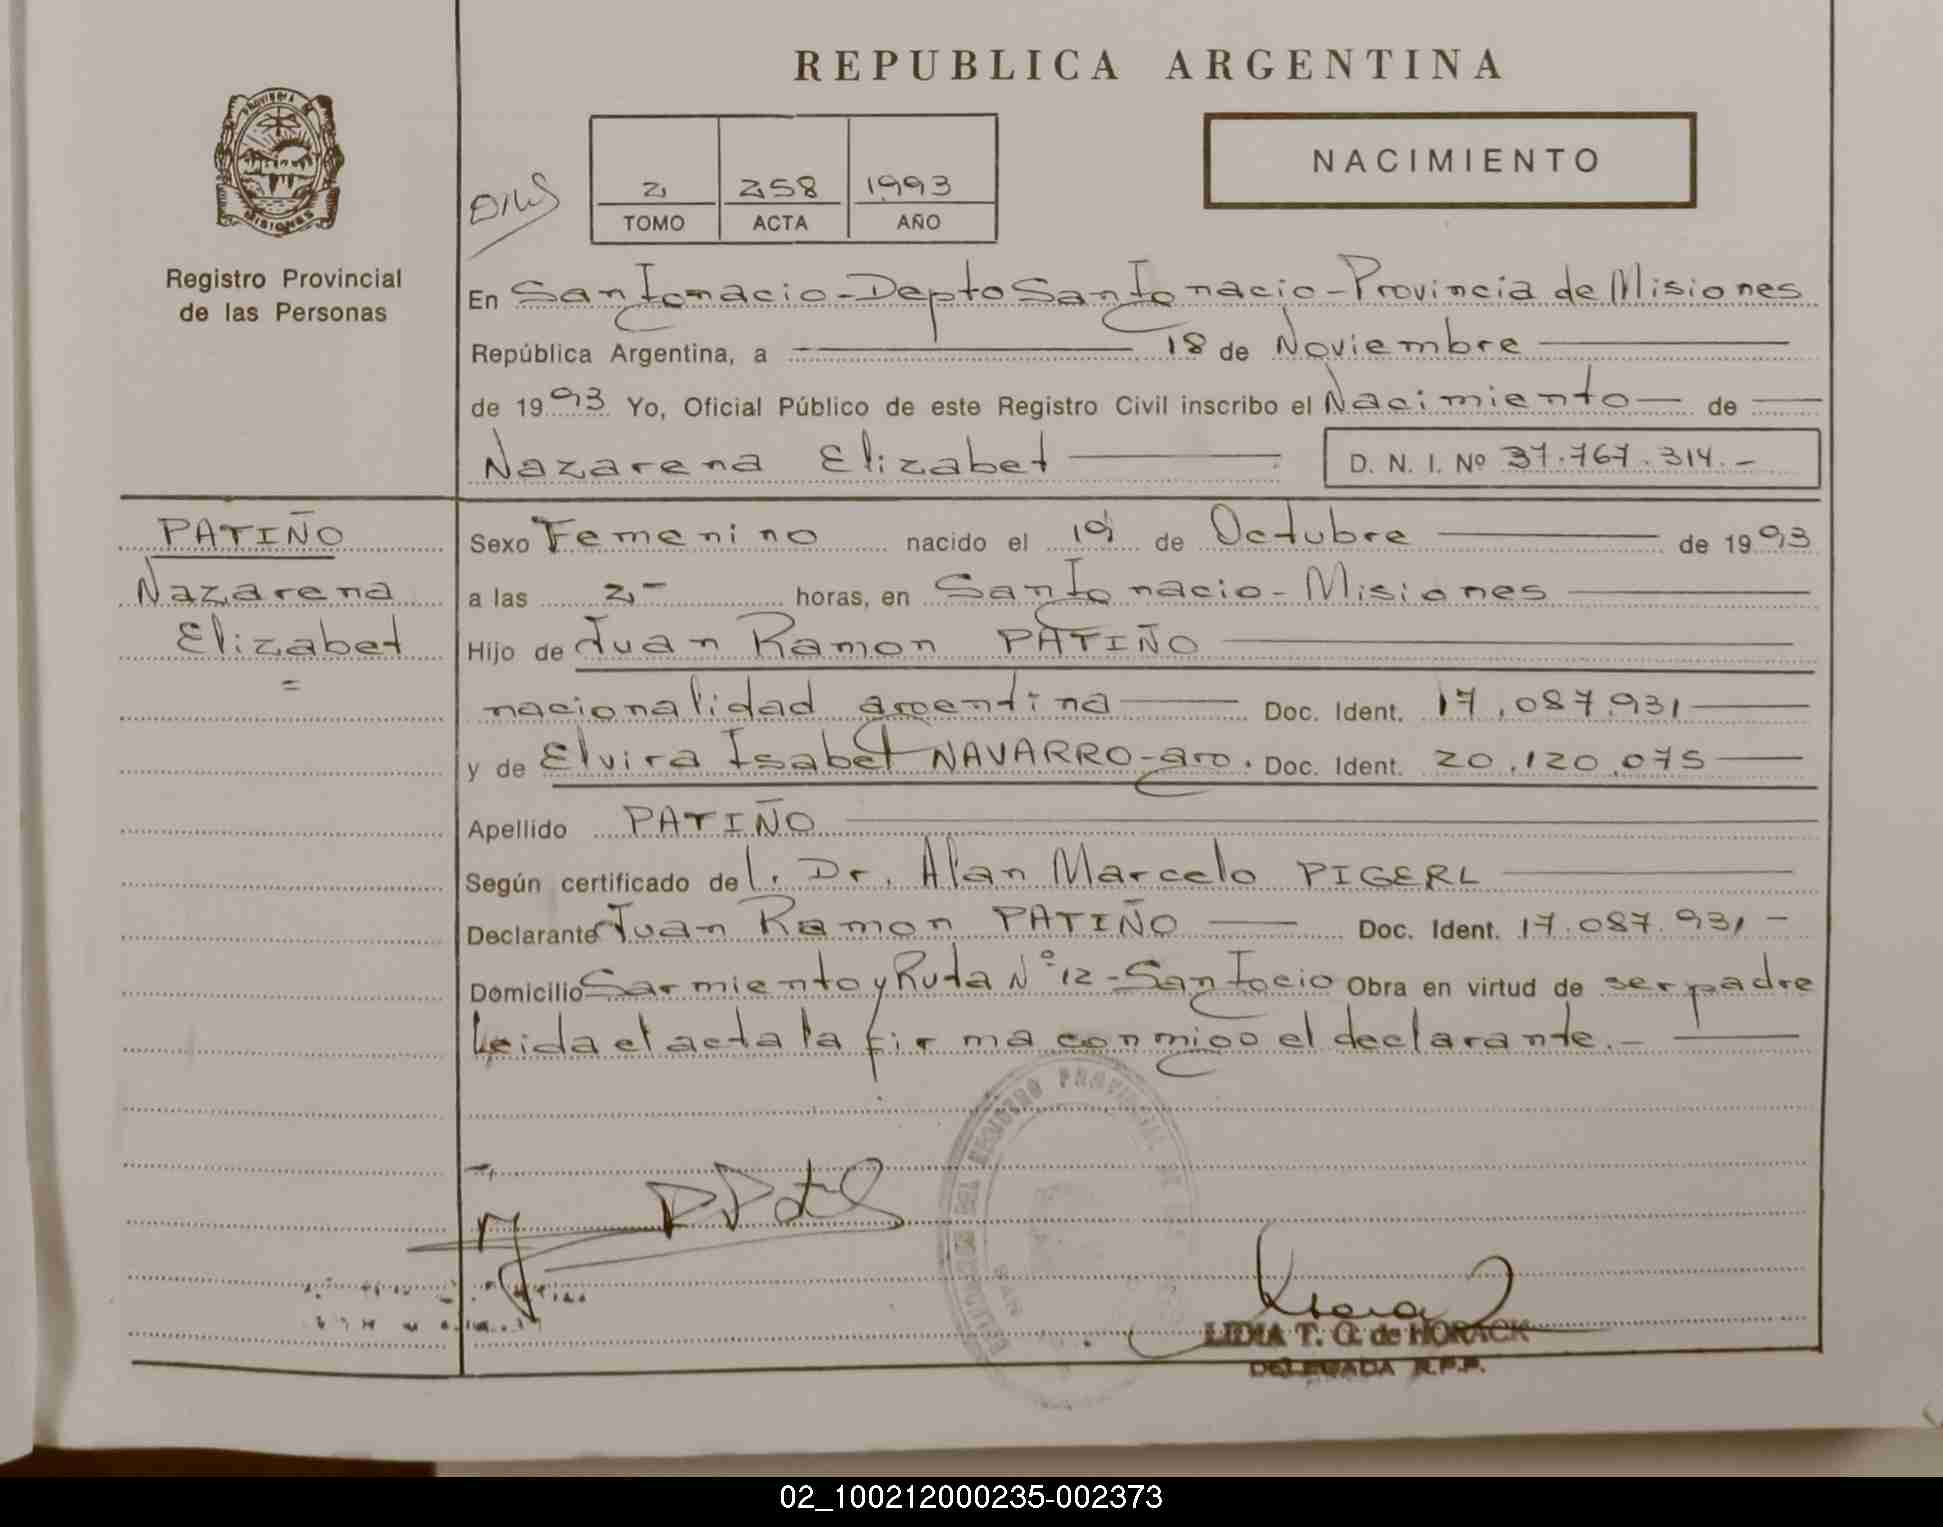 REPUBLICA ARGENTINA
NACIMIENTO
2 258 1993
TOMO ACTA AÑO
PROVINCIA DE
MISIONES
Registro Provincial
de las Personas
En San Ignacio - Depto San Ignacio - Provincia de Misiones
República Argentina, a 18 de Noviembre
de 1993 Yo, Oficial Público de este Registro Civil inscribo el Nacimiento de
Nazarena Elizabet D. N. I. Nº 37.767.314.-
PATIÑO
Nazarena
Elizabet
=
Sexo Femenino nacido el 19 de Octubre de 1993
a las 2- horas, en San Ignacio - Misiones
Hijo de Juan Ramon PATIÑO
nacionalidad argentina Doc. Ident. 17.087.931
y de Elvira Isabel NAVARRO-arg. Doc. Ident. 20.120.075
Apellido PATIÑO
Según certificado del. Dr. Alan Marcelo PIGERL
Declarante Juan Ramon PATIÑO Doc. Ident. 17.087.931 -
Domicilio Sarmiento y Ruta Nº 12 - San Igcio Obra en virtud de ser padre
Leida el acta la firma conmigo el declarante.-
REGISTRO PROVINCIAL DE
LIDIA T. G. de HORACK
DELEGADA R.P.P.
02_100212000235-002373